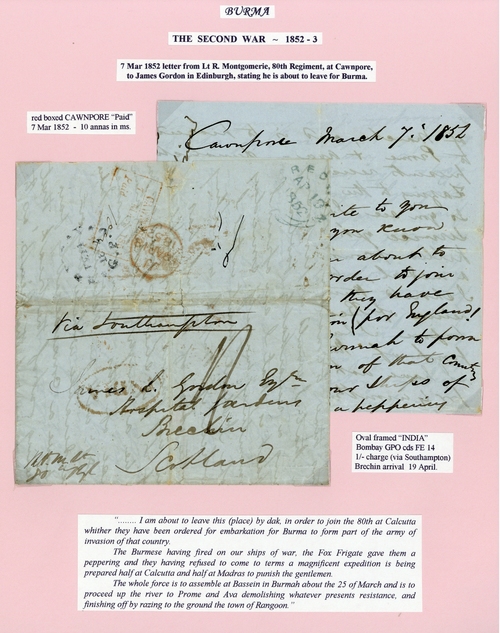 BURMA
THE SECOND WAR ~ 1852 - 3
7 Mar 1852 letter from Lt R. Montgomerie, 80th Regiment, at Cawnpore,
to James Gordon in Edinburgh, stating he is about to leave for Burma.
red boxed CAWNPORE "Paid"
7 Mar 1852 - 10 annas in ms.
Cawnpore March 7. 1852
to you
you know
about to
order to join
they have
(for England!
Burmah to form
of that Country
our ships of
a peppering
Via Southampton
James L. Gordon Esqre
Hospital Gardens
Brechin
Scotland
Oval framed "INDIA"
Bombay GPO cds FE 14
1/- charge (via Southampton)
Brechin arrival 19 April.
"........ I am about to leave this (place) by dak, in order to join the 80th at Calcutta
whither they have been ordered for embarkation for Burma to form part of the army of
invasion of that country.
The Burmese having fired on our ships of war, the Fox Frigate gave them a
peppering and they having refused to come to terms a magnificent expedition is being
prepared half at Calcutta and half at Madras to punish the gentlemen.
The whole force is to assemble at Bassein in Burmah about the 25 of March and is to
proceed up the river to Prome and Ava demolishing whatever presents resistance, and
finishing off by razing to the ground the town of Rangoon."